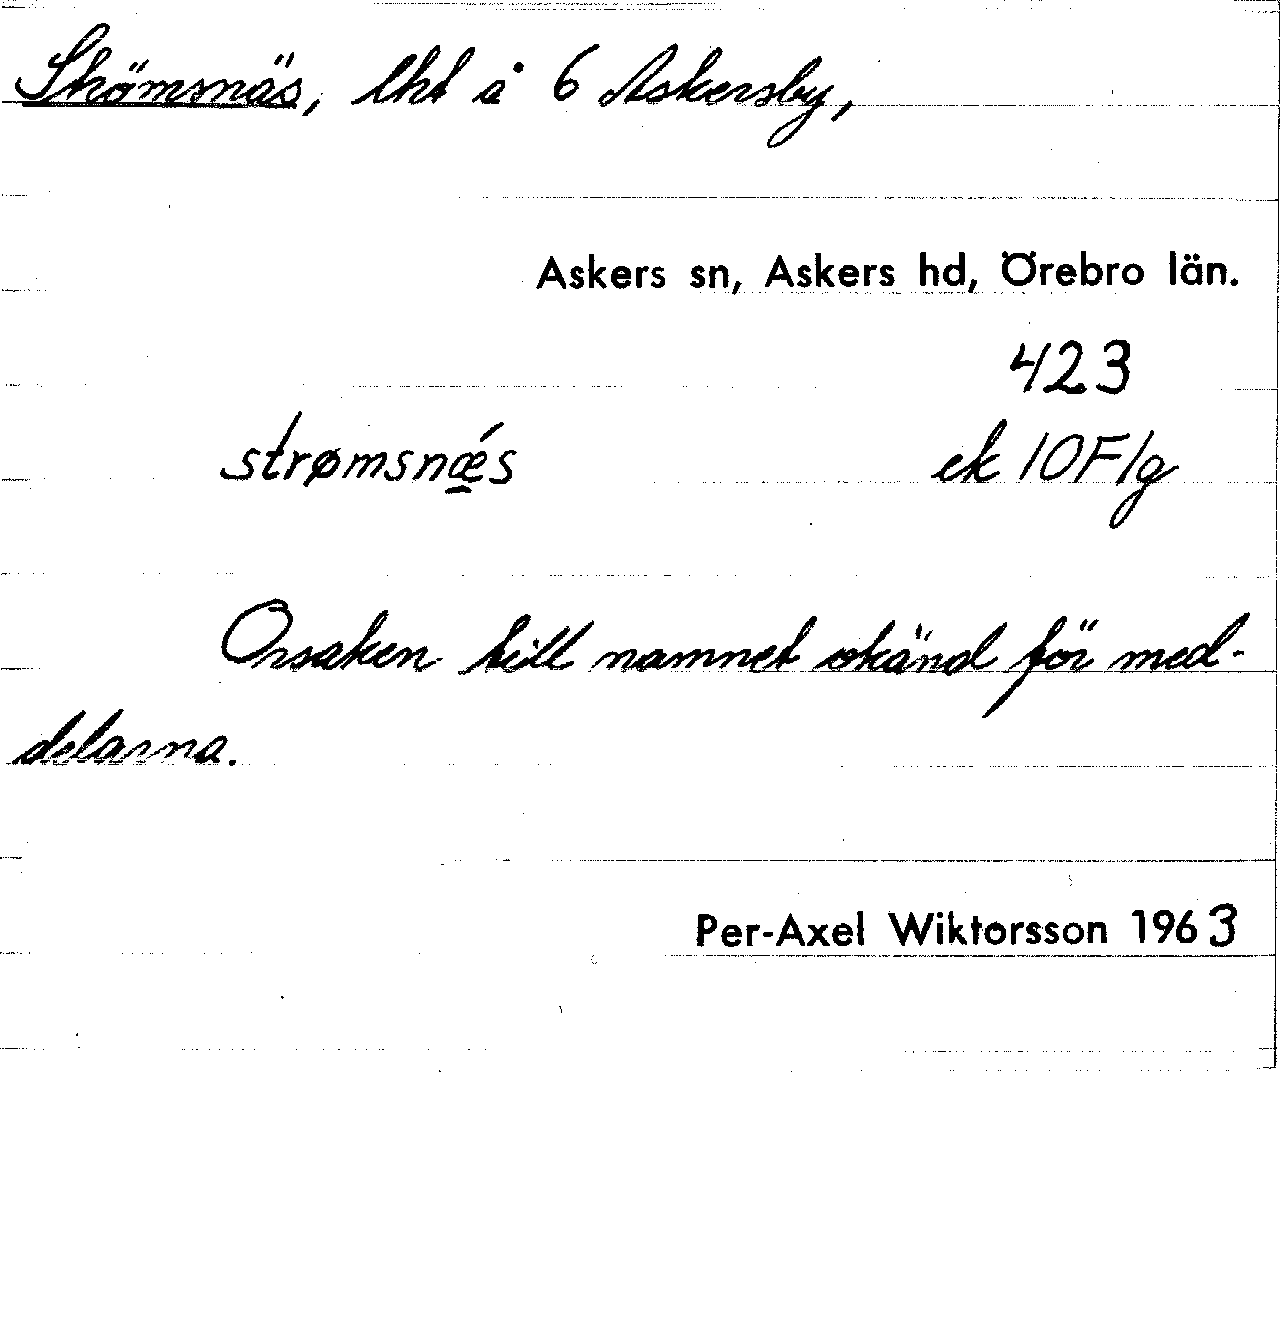 Strömsnäs, lht å 6 Askersby,
Askers sn, Askers hd, Örebro län.
423
strømsnǽs ek 10F1g
Orsaken till namnet okänd för med-
delarna.
Per-Axel Wiktorsson 1963